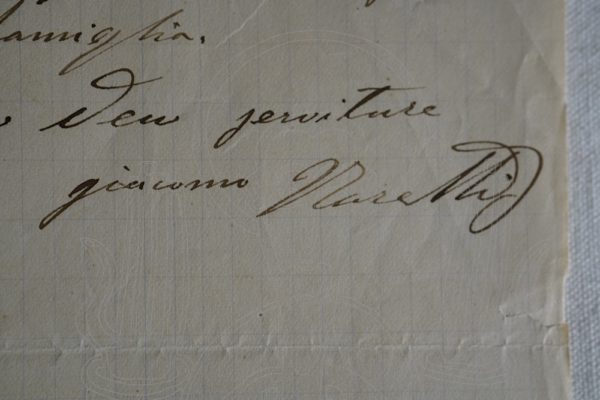 famiglia.
Deu serviture
giacomo Narelli